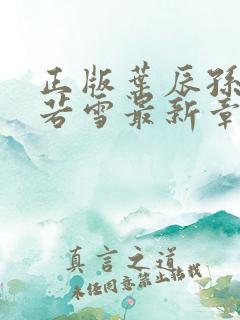 正版叶辰孙
若雪最新章
真言之道
未经同意禁止转载